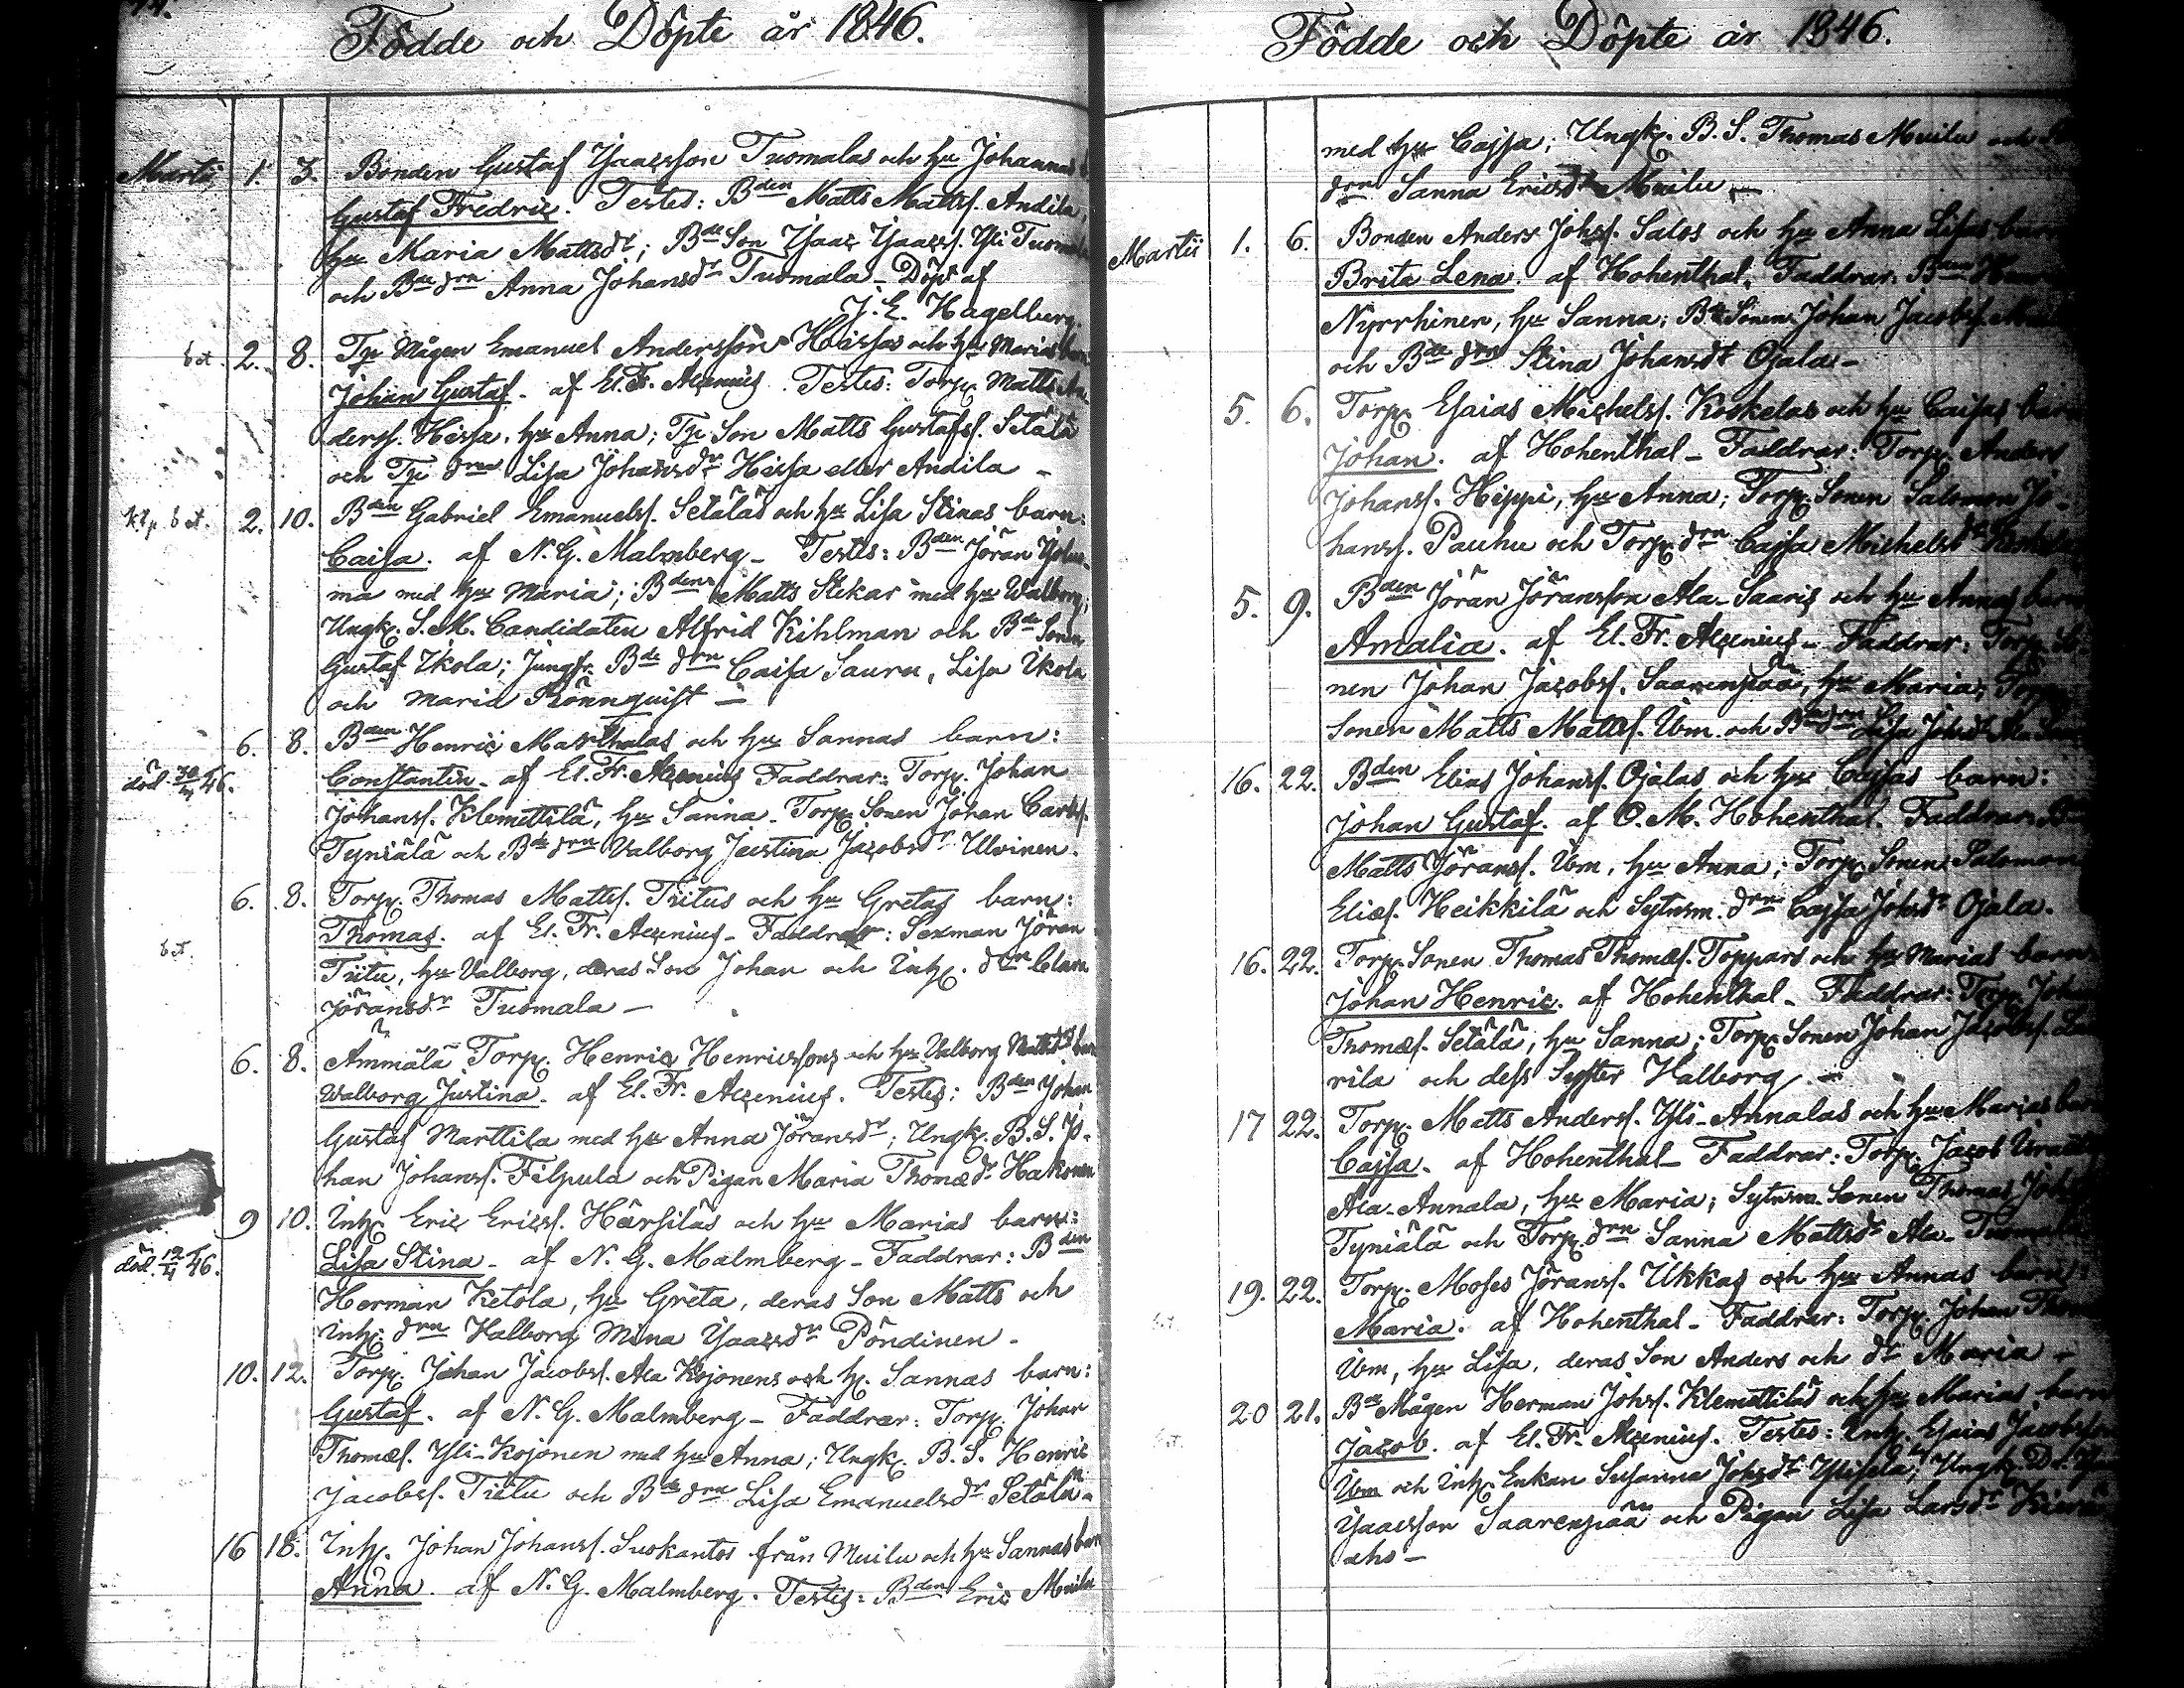 Födde och Döpte år 1846.
Martii 1. 3. Bonden Gustaf Ysaacsson Tuomalas och hu Johannas
Gustaf Fredric. Testes: Bden Matts Mattss. Andila,
hu Maria Mattsdr; Bde Son Ysaac Ysaacss. Yli Tuomala
och Bde drn Anna Johansdr Tuomala - Döpt af
J. E. Hagelberg.
bet. 2. 8. Tp Mågen Emanuel Andersson Hissas och hu Marias barn
Johan Gustaf. af El. Fr. Alcenius. Testes: Torp. Matts An-
derss. Hissa, hu Anna; Tp Son Matts Gustafss. Setälä
och Tp drn Lisa Johansdr Hissa eller Andila -
Ktp. bet. 2. 10. Bden Gabriel Emanuelss. Setäläs och hu Lisa Stinas barn:
Caisa. af N. G. Malmberg - Testes: Bden Jöran
ma med hu Maria; Bden Matts Stekar med hu Walborg;
Ungk. S. M. Candidaten Alfrid Kihlman och Bde Sonen
Gustaf Ikola; Jungfr. Bde drn Caisa Sauru, Lisa Ikola
och Maria Rönnquist -
6. 8. Bden Henric Marthalas och hu Sannas barn:
död 30/4 46. Constantin. af El. Fr. Alcenius Faddrar: Torp. Johan
Johanss. Klemettilä, hu Sanna - Torp. Sonen Johan Carlss.
Tyniälä och Bde drn Valborg Justina Jacobsdr Ulvinen.
6. 8. Torp. Thomas Mattss. Tiitus och hu Gretas barn:
Thomas. af El. Fr. Alcenius - Faddrar: Sexman Jöran
bet. Tiitu, hu Valborg, deras Son Johan och Inh. drn Clara
Jöransdr Tuomala -
6. 8. Ammälä Torp. Henric Henricssons och hu Valborg Mattsdrs barn
Walborg Justina. af El. Fr. Alcenius. Testes: Bden Johan
Gustaf Marttila med hu Anna Jöransdr; Ungk. B. S. Jo-
han Johanss. Filpula och Pigan Maria Thomædr Hakonen
9 10. Inh. Eric Ericss. Härsiläs och hu Marias barn:
död 12/4 46. Lisa Stina - af N. G. Malmberg - Faddrar: Bden
Herman Ketola, hu Greta, deras Son Matts och
Inh. drn Valborg Mina Ysaacsdr Pöndinen -
10. 12. Torp. Johan Jacobss. Ala Kojonens och h. Sannas barn:
Gustaf. af N. G. Malmberg - Faddrar: Torp. Johan
Thomæs. Yli-Kojonen med hu Anna; Ungk. B. S. Henric
Jacobss. Tiitu och Bde drn Lisa Emanuelsdr Setälä -
16 18. Inh. Johan Johanss. Suokantos från Muilu och hu Sannas barn
Anna. af N. G. Malmberg. Testes: Bden Eric Muilu
Födde och Döpte år 1846.
med hu Cajsa; Ungk. B. S. Thomas Muilu och
drn Sanna Ericsdr Muilu -
Martii 1. 6. Bonden Anders Johss. Salos och hu Anna Lisas barn
Brita Lena. af Hohenthal. Faddrar: Bden
Nyrrhinen, hu Sanna; Bde Sonen Johan Jacobss.
och Bde drn Stina Johansdt Ojala -
5. 6. Torp. Esaias Michelss. Koskelas och hu Caisas barn
Johan. af Hohenthal - Faddrar: Torp. Anders
Johanss. Hippi, hu Anna; Torp. Sonen Salomon Jo-
hanss. Pauhu och Torp. drn Cajsa Michelsdr
5. 9. Bden Jöran Jöransson Ala-Saaris och hu Annas barn
Amalia. af El. Fr. Alcenius - Faddrar: Torp. So-
nen Johan Jacobss. Saarenpää, hu Maria; Torp.
Sonen Matts Mattss. Wm. och Bde drn Lisa Johsdr
16. 22. Bden Elias Johanss. Ojalas och hu Cajsas barn:
Johan Gustaf. af O. M. Hohenthal. Faddrar:
Matts Jöranss. Wm, hu Anna; Torp. Sonen Salomon
Eliæs. Heikkilä och Sytnsm. drn Cajsa Johsdr Ojala.
16. 22. Torp. Sonen Thomas Thomæs. Toppars och hu Marias barn
Johan Henric. af Hohenthal - Faddrar: Torp. Johan
Thomæs. Setälä, hu Sanna; Torp. Sonen Johan Jacobss.
rila och dess Syster Valborg -
17 22. Torp. Matts Anderss. Yli-Annalas och hu Marias barn
Cajsa. af Hohenthal - Faddrar: Torp. Jacob
Ala-Annala, hu Maria; Sytnsm. Sonen Thomas
Tyniälä och Torp. drn Sanna Mattsdr Ala-Tuomala
19. 22. Torp. Moses Jöranss. Ukkas och hu Annas barn
bt. Maria. af Hohenthal - Faddrar: Torp. Johan
Wm, hu Lisa, deras Son Anders och dr Maria -
20 21. Bde Mågen Herman Johss. Klemettiläs och hu Marias barn
bt. Jacob. af El. Fr. Alcenius. Testes: Inh. Esaias Jacobsson
Wm och Inh. Enkan Susanna Johsdr; Ungk.
Ysaacsson Saarenpää och Pigan Lisa Larsdr
aho -